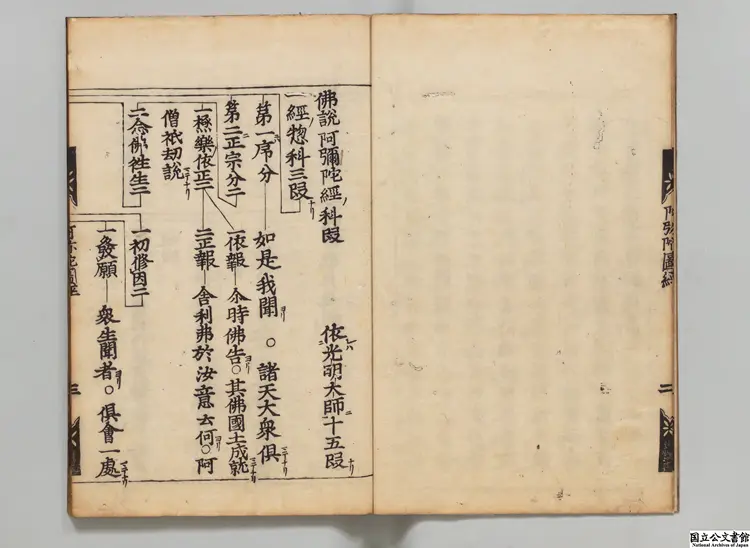 佛說阿彌陀經科段 依光明大師十五段
一經惣科三段
第一序分 如是我聞。諸天大衆俱
第二正宗分二
一極樂依正二 一依報 尒時佛告。其佛國土成就
二正報 舍利弗於汝意云何。阿
僧祇劫說
二念佛徃生二
一初修因二
一發願 衆生聞者。俱會一處
三
二
国立公文書館
National Archives of Japan